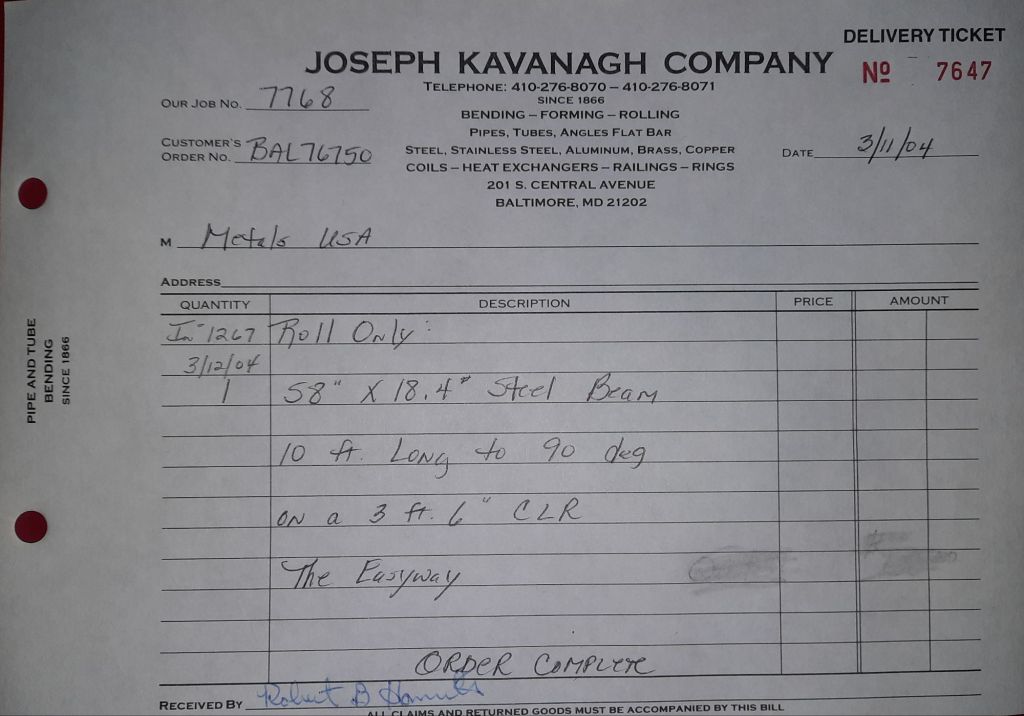 DELIVERY TICKET
JOSEPH KAVANAGH COMPANY
Nº 7647
TELEPHONE: 410-276-8070 – 410-276-8071
OUR JOB NO. 7768
SINCE 1866
BENDING – FORMING – ROLLING
PIPES, TUBES, ANGLES FLAT BAR
CUSTOMER'S ORDER NO. BAL76750
STEEL, STAINLESS STEEL, ALUMINUM, BRASS, COPPER
DATE 3/11/04
COILS – HEAT EXCHANGERS – RAILINGS – RINGS
201 S. CENTRAL AVENUE
BALTIMORE, MD 21202
M Metals USA
ADDRESS
QUANTITY DESCRIPTION PRICE AMOUNT
In-1267 Roll Only:
3/12/04
1 58" X 18.4# Steel Beam
10 ft. Long to 90 deg
on a 3 ft. 6" CLR
The Easyway
ORDER COMPLETE
RECEIVED BY Robert B
ALL CLAIMS AND RETURNED GOODS MUST BE ACCOMPANIED BY THIS BILL
PIPE AND TUBE
BENDING
SINCE 1866